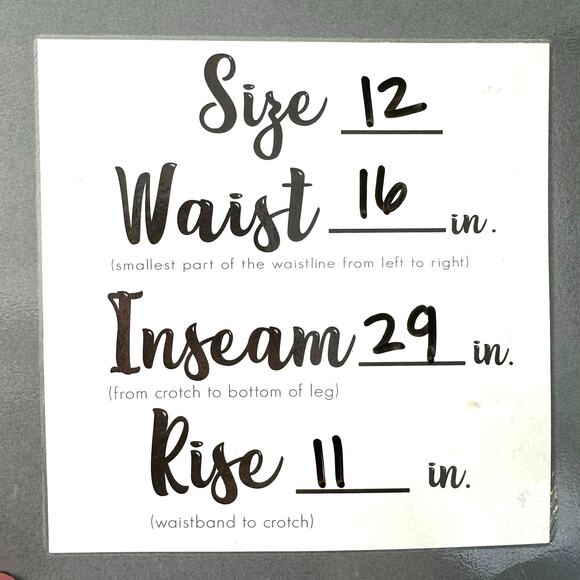 Size 12
Waist 16 in.
(smallest part of the waistline from left to right)
Inseam 29 in.
(from crotch to bottom of leg)
Rise 11 in.
(waistband to crotch)